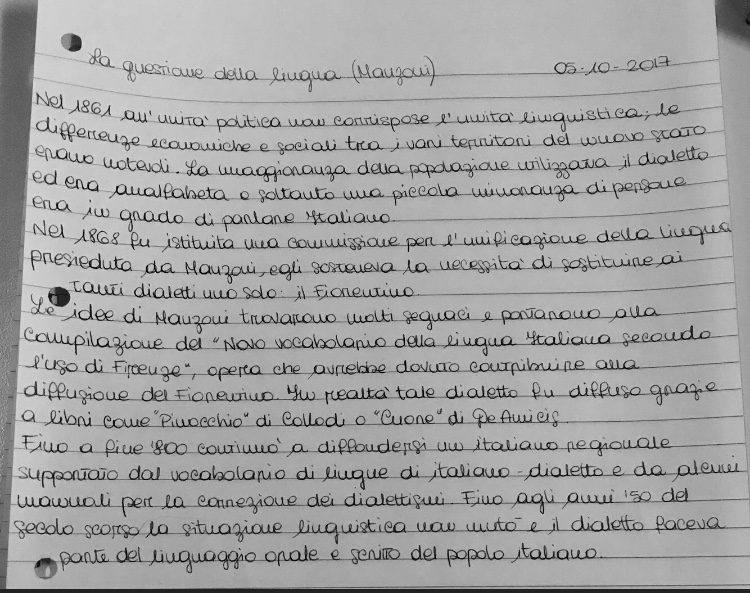 La questione della lingua (Manzoni) 05-10-2017
Nel 1861 all'unità politica non corrispose l'unità linguistica; le
differenze economiche e sociali tra i vari territori del nuovo stato
erano notevoli. La maggioranza della popolazione utilizzava il dialetto
ed era analfabeta e soltanto una piccola minoranza di persone
era in grado di parlare Italiano.
Nel 1868 fu istituita una commissione per l'unificazione della lingua
presieduta da Manzoni, egli sosteneva la necessità di sostituire ai
tanti dialetti uno solo: il Fiorentino.
Le idee di Manzoni trovarono molti seguaci e portarono alla
compilazione del "Novo vocabolario della lingua Italiana secondo
l'uso di Firenze", opera che avrebbe dovuto contribuire alla
diffusione del Fiorentino. In realtà tale dialetto fu diffuso grazie
a libri come "Pinocchio" di Collodi o "Cuore" di De Amicis.
Fino a fine '800 continuò a diffondersi un italiano regionale
supportato dal vocabolario di lingue di italiano-dialetto e da alcuni
manuali per la correzione dei dialettismi. Fino agli anni '50 del
secolo scorso la situazione linguistica non mutò e il dialetto faceva
parte del linguaggio orale e scritto del popolo italiano.